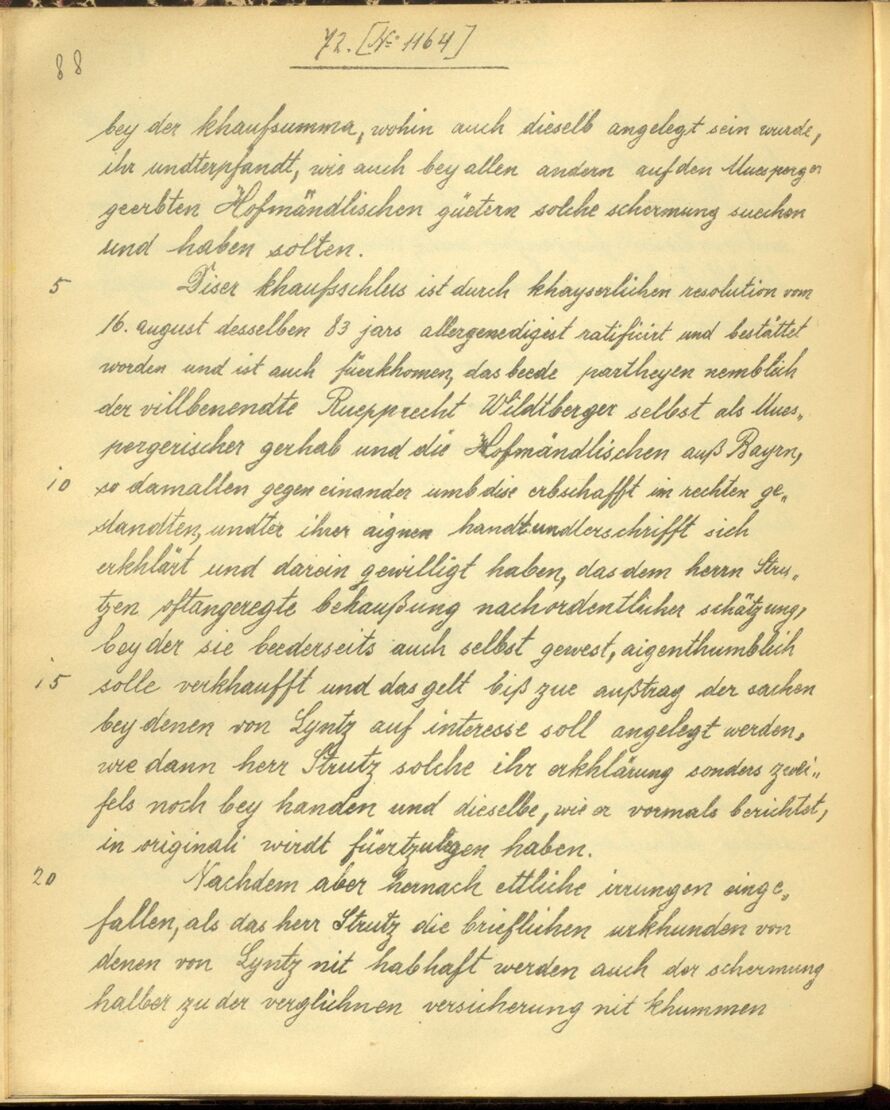 88
72. [No 1164]
bey der khaufsumma, wohin auch dieselb angelegt sein wurde,
ihr undterpfandt, wie auch bey allen andern auf den Muesperger
geerbten Hofmändlischen güetern solche schermung suechen
und haben solten.
5 Diser khaufsschlus ist durch khayserlichen resolution vom
16. august desselben 83 jars allergenedigist ratificirt und bestättet
worden und ist auch füerkhomen, das beede partheyen nemblich
der villbenendte Ruepprecht Wildtberger selbst als Mues„
pergerischer gerhab und die Hofmändlischen auß Bayrn,
10 so damallen gegen einander umb dise erbschafft im rechten ge„
standten, undter ihrer aignen handtundterschrifft sich
erkhlärt und darein gewilligt haben, das dem herrn Stru„
tzen oftangeregte behaußung nach ordentlicher schätzung,
bey der sie beederseits auch selbst gewest, aigenthumblich
15 solle verkhaufft und das gelt biß zue außtrag der sachen
bey denen von Lyntz auf interesse soll angelegt werden,
wie dann herr Strutz solche ihr erkhlärung sonders zwei„
fels noch bey handen und dieselbe, wie er vormals berichtet,
in originali wirdt füertzulegen haben.
20 Nachdem aber hernach ettliche irrungen einge„
fallen, als das herr Strutz die brieflichen urkhunden von
denen von Lyntz nit habhaft werden auch der schermung
halber zu der verglichnen versicherung nit khummen